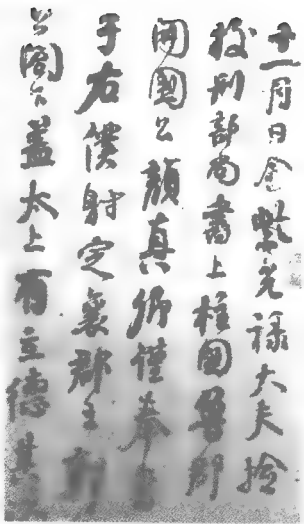 十一月日金紫光祿大夫撿
挍刑部尚書上柱国魯郡
開國公顏真卿謹奉
于右僕射定襄郡王郭
公閤下蓋太上有立德其